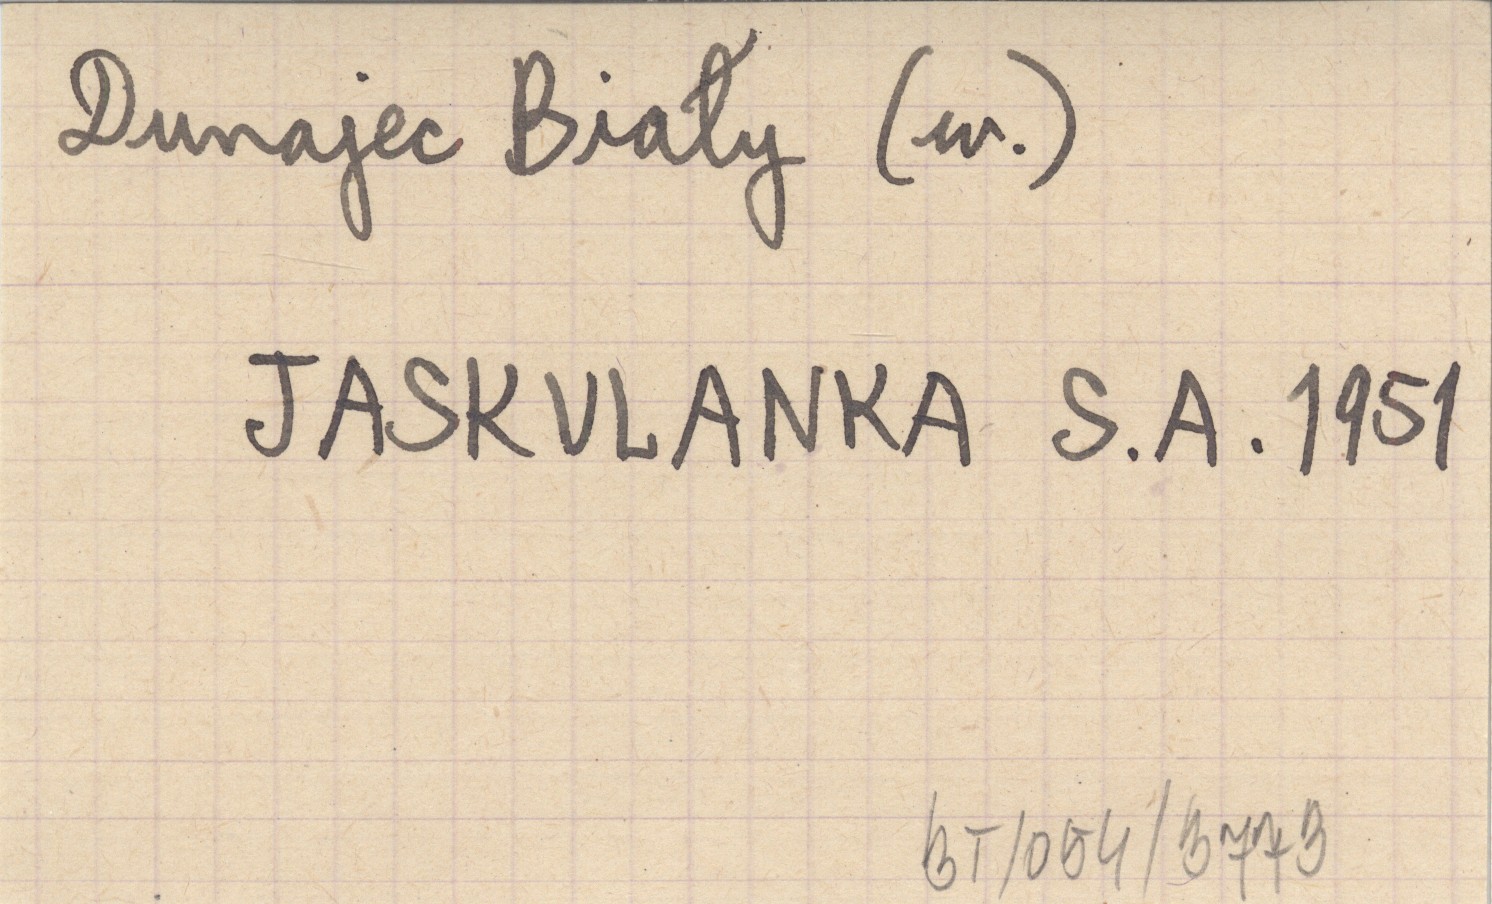 Dunajec Biały (w.)
JASKULANKA S.A. 1951
BT/054/3773